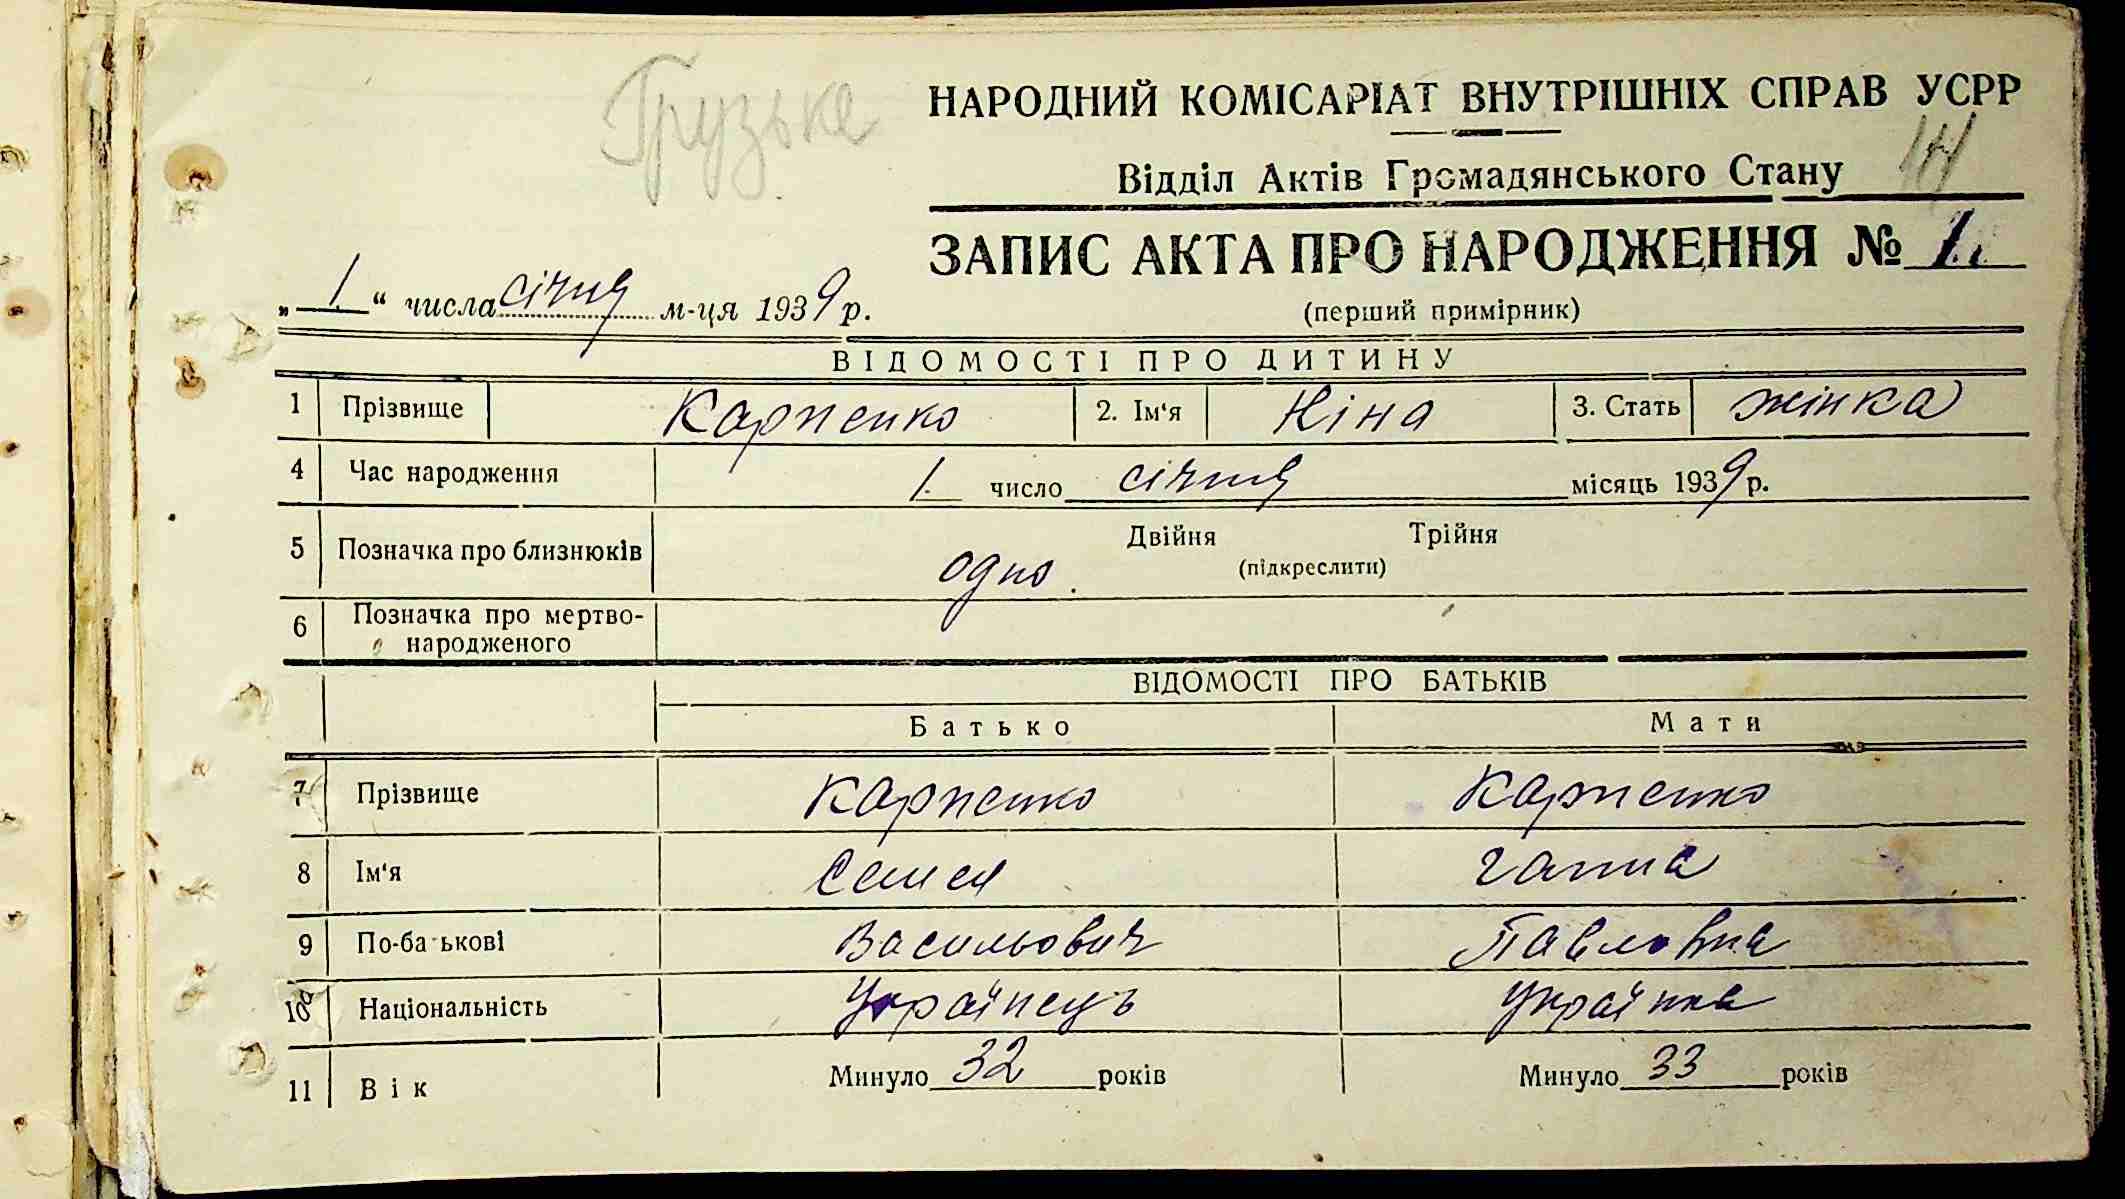 Грузьке
НАРОДНИЙ КОМІСАРІАТ ВНУТРІШНІХ СПРАВ УСРР
Відділ Актів Громадянського Стану
ЗАПИС АКТА ПРО НАРОДЖЕННЯ № 1.
„ 1. “ числа січня м-ця 1939 р.
(перший примірник)
ВІДОМОСТІ ПРО ДИТИНУ
1 Прізвище Карпенко 2. Ім'я Ніна 3. Стать жінка
4 Час народження 1. число січня місяць 1939 р.
5 Позначка про близнюків одно. Двійня Трійня
(підкреслити)
6 Позначка про мертво-
народженого
ВІДОМОСТІ ПРО БАТЬКІВ
Батько Мати
7 Прізвище Карпенко Карпенко
8 Ім'я Ганна
9 По-ба-ькові Васильович Павловна
10а Національність Українець Українка
11 Вік Минуло 32 років Минуло 33 років